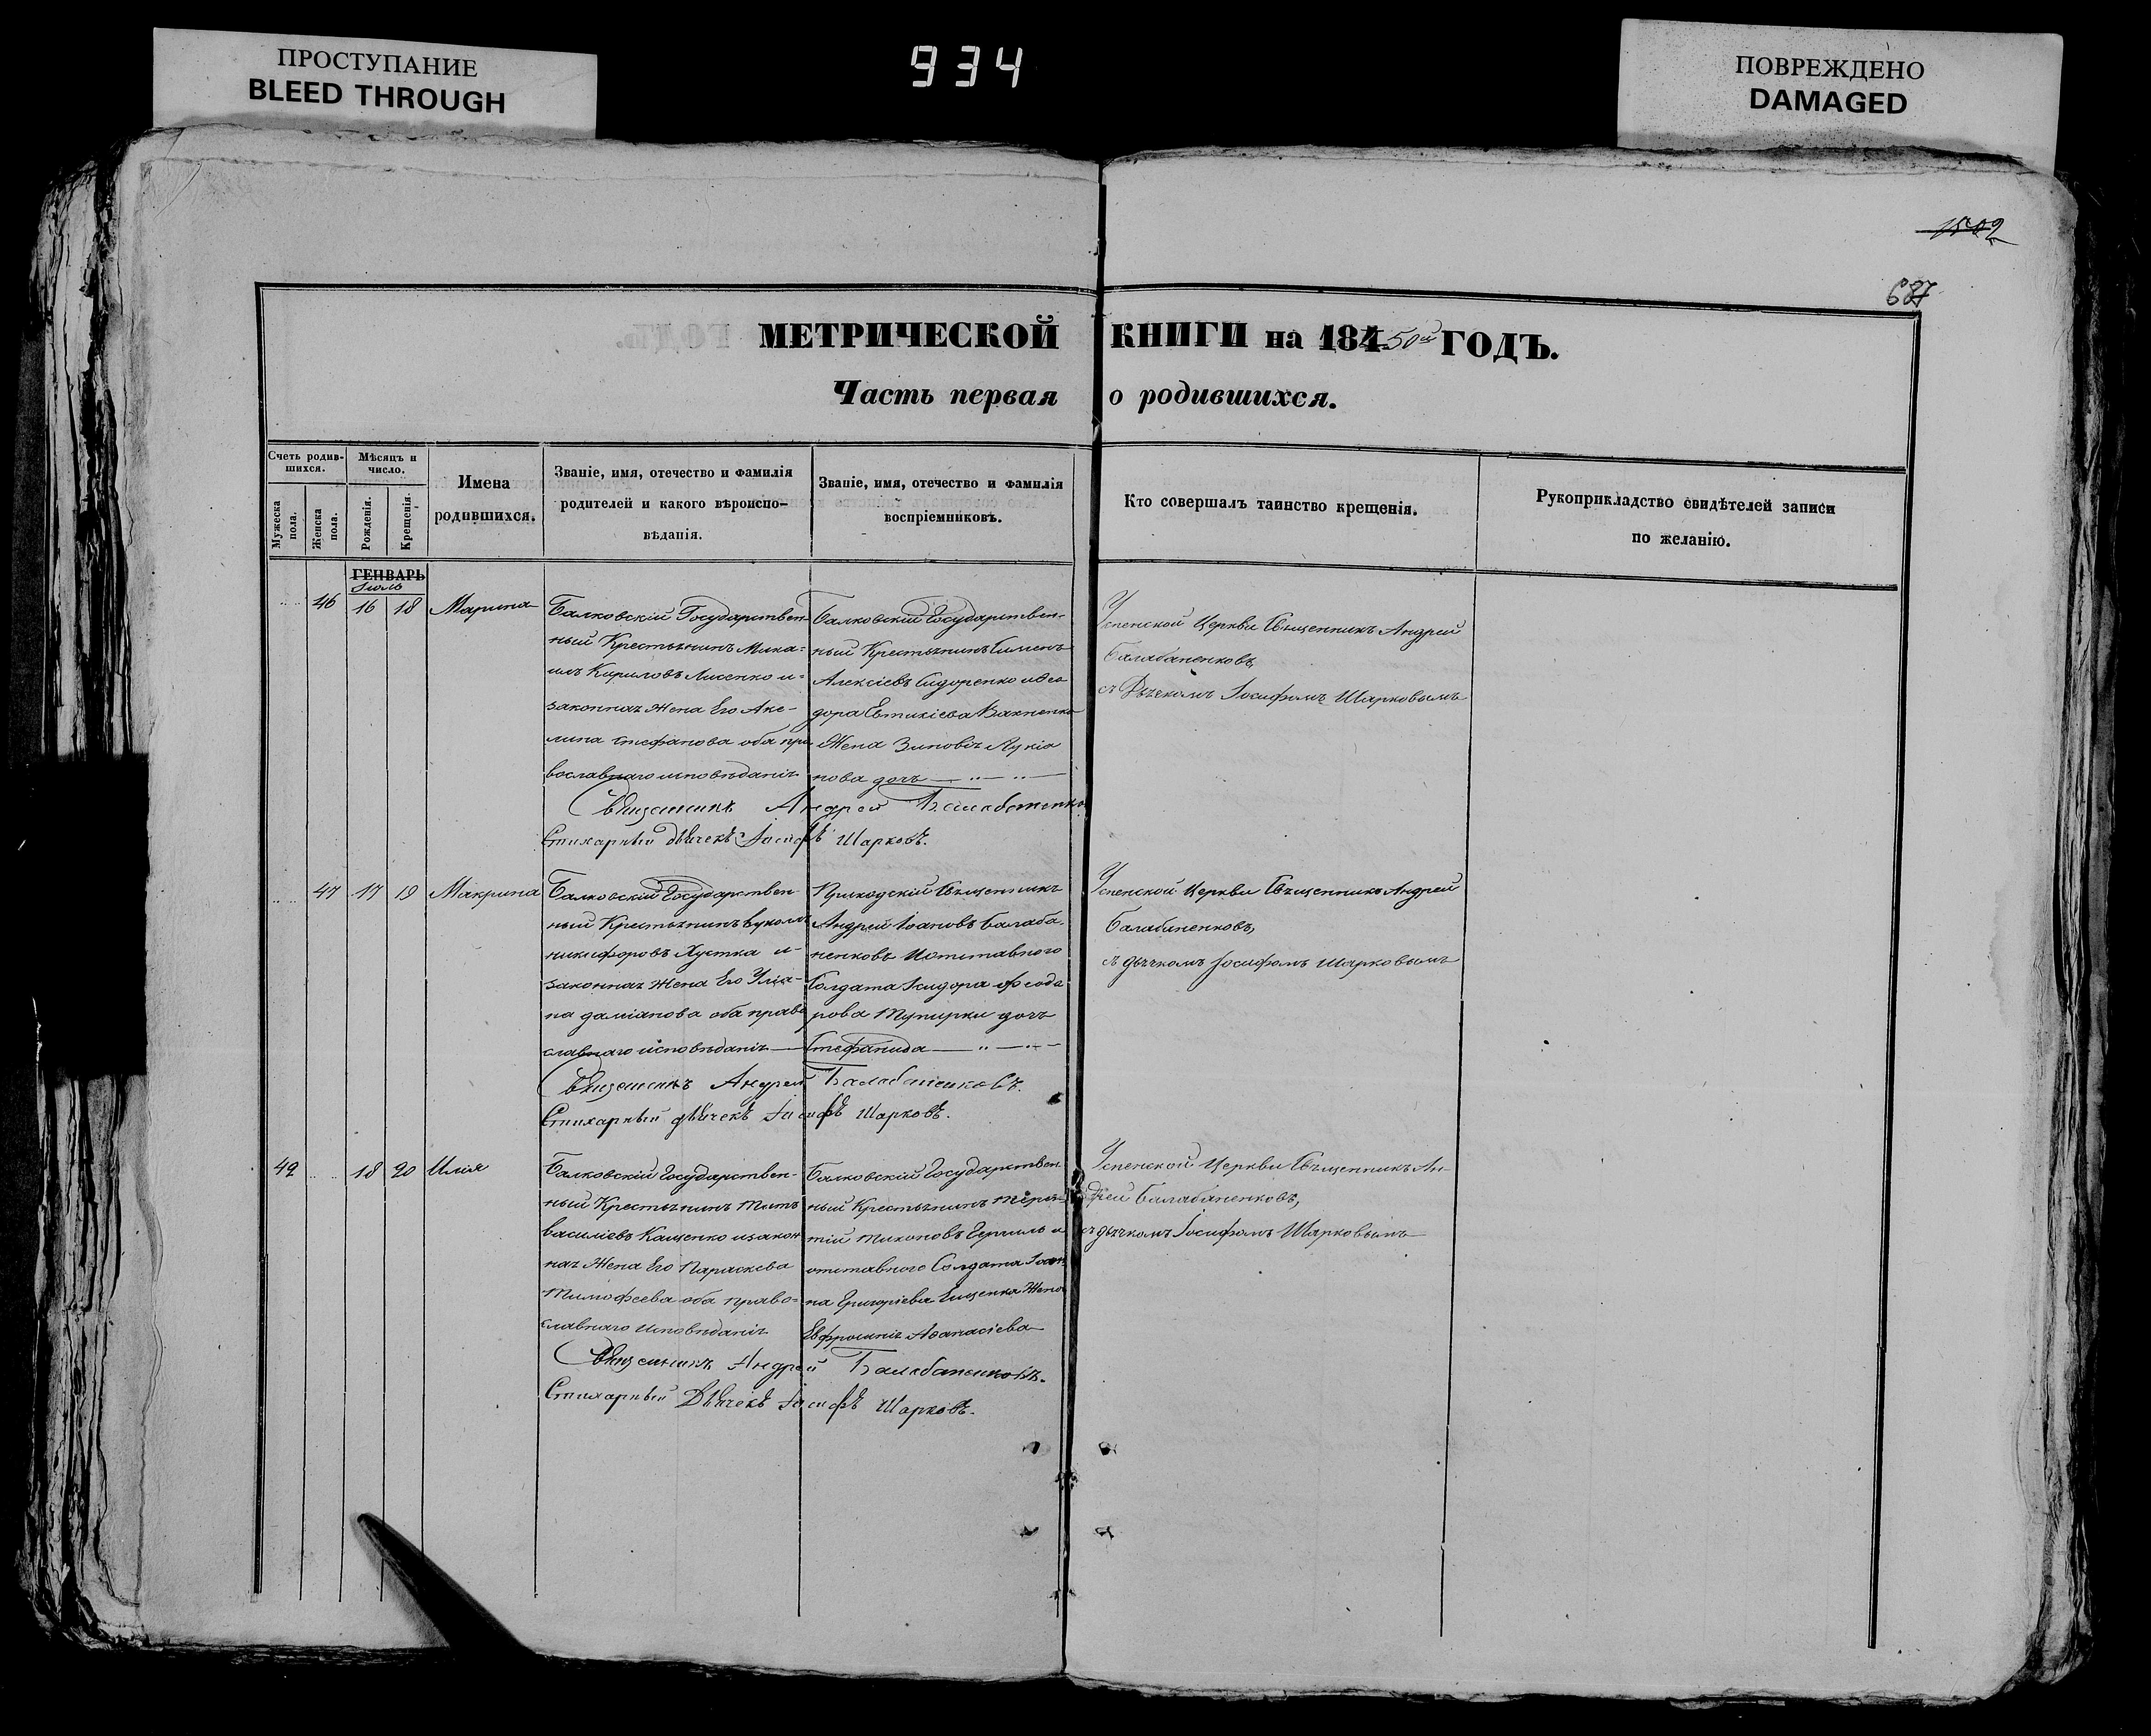 ПРОСТУПАНИЕ
BLEED THROUGH
934
ПОВРЕЖДЕНО
DAMAGED
1502
687
МЕТРИЧЕСКОЙ КНИГИ на 184 50й ГОДЪ.
Часть первая о родившихся.
Счетъ родив-
шихся.
Мужеска пола.
Женска пола.
Мѣсяцъ и
число.
Рожденія.
Крещенія.
Имена
родившихся.
Званіе, имя, отечество и фамилія
родителей и какого вѣроиспо-
вѣданія.
Званіе, имя, отечество и фамилія
воспріемниковъ.
Кто совершалъ таинство крещенія.
Рукоприкладство свидѣтелей записи
по желанію.
ГЕНВАРЬ
Іюль
46 16 18 Марина
Балковскій Государствен-
ный Крестьянинъ Миха-
илъ Кириловъ Лисенко и-
законная Жена Его Аке-
лина Стефанова оба пра
вославнаго исповѣданія
Балковскій Государствен-
ный Крестьянинъ Симеонъ
Алексіевъ Сидоренко и Ѳео
дора Евтихіева Вакненка
Жена Зиновія Лукіа
нова дочь
Успенской Церкви Священникъ Андрей
Балабаненковъ,
съ Дьячкомъ Іосифомъ Шарковымъ
Священникъ Андрей Балабаненко
Стихарный дьячекъ Іосифъ Шарковъ.
47 17 19 Макрина
Балковскій Государствен
ный Крестьянинъ Вуколъ
никифоровъ Хустка и-
законная Жена Его Уліа-
на даміанова оба право
славнаго исповѣданія
Приходскій Священникъ
Андрей Іоановъ Балаба-
ненковъ и отставного
Солдата Исидора Феодо
рова дочь
Стефанида
Успенской Церкви Священникъ Андрей
Балабаненковъ,
съ дьячкомъ Іосифомъ Шарковымъ
Священникъ Андрей Балабаненковъ.
Стихарный дьячекъ Іосифъ Шарковъ.
42 18 20 Илія
Балковскій Государствен-
ный Крестьянинъ Титъ
василіевъ Кащенко и закон
ная Жена Его Параскева
Тимофеева оба право-
славнаго исповѣданія
Балковскій Государствен
ный Крестьянинъ Терен-
тій Тихоновъ и
отставного Солдата Іоан
на Григоріева Ещенка Жена
Евфросинія Аѳанасіева
Успенской Церкви Священникъ Ан-
дрей Балабаненковъ,
съ дьячкомъ Іосифомъ Шарковымъ
Священникъ Андрей Балабаненковъ.
Стихарный Дьячекъ Іосифъ Шарковъ.